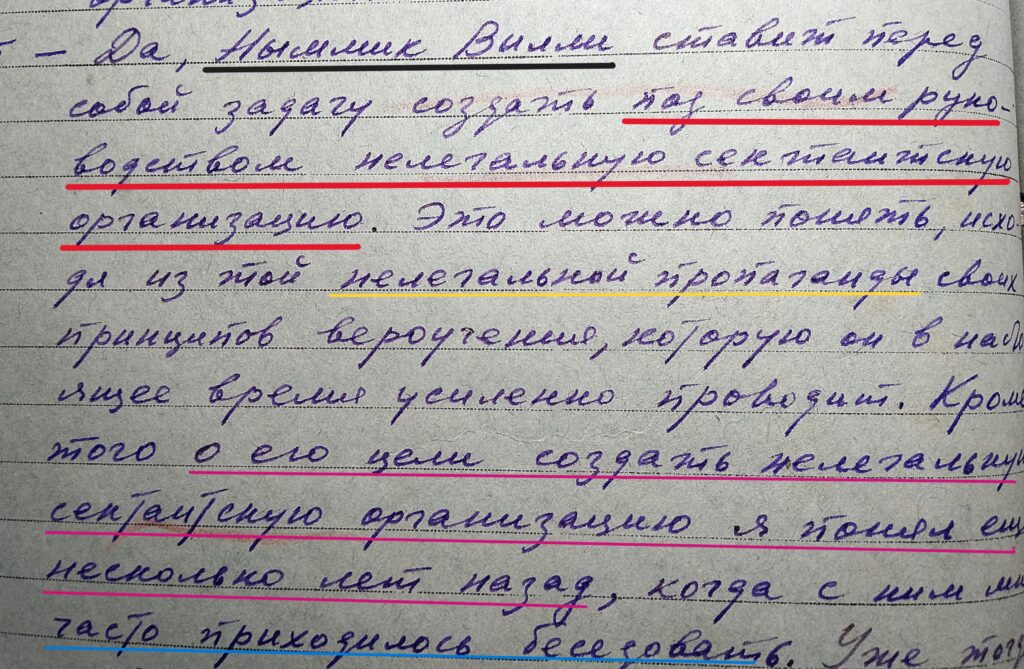 - Да, Ныммик Вылли ставит перед
собой задачу создать под своим руко-
водством нелегальную сектантскую
организацию. Это можно понять, исхо-
дя из той нелегальной пропаганды своих
принципов вероучения, которую он в
ящее время усиленно проводит. Кроме
того о его цели создать нелегальную
сектантскую организацию я понял ещ
несколько лет назад, когда с ним мн
часто приходилось беседовать. Уже тогд